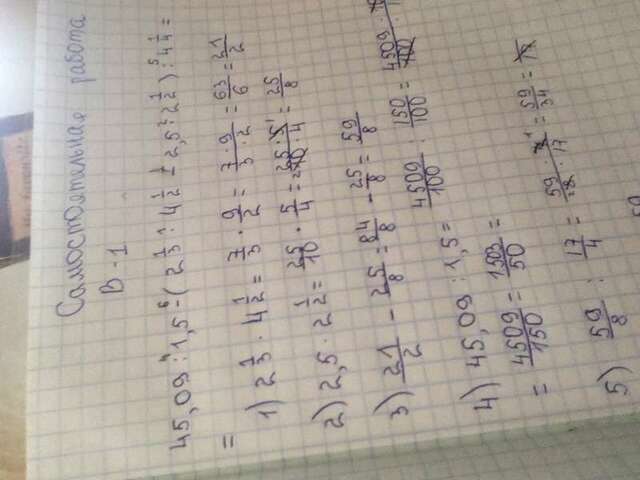 Самостоятельная работа
В-1
45,09 : 1,5 - (2 1/3 · 4 1/2 - 2,5 : 2 1/2) : 4 1/4 =
=
1) 2 1/3 · 4 1/2 = 7/3 · 9/2 = 7·9/3·2 = 63/6 = 21/2
2) 2,5 · 2 1/2 = 25/10 · 5/4 = 25·5/10·4 = 25/8
3) 21/2 - 25/8 = 84/8 - 25/8 = 59/8
4) 45,09 : 1,5 = 4509/100 : 150/100 = 4509/100
= 4509/150 = 1503/50 =
5) 59/8 : 17/4 = 59·4/8·17 = 59/34 =
59